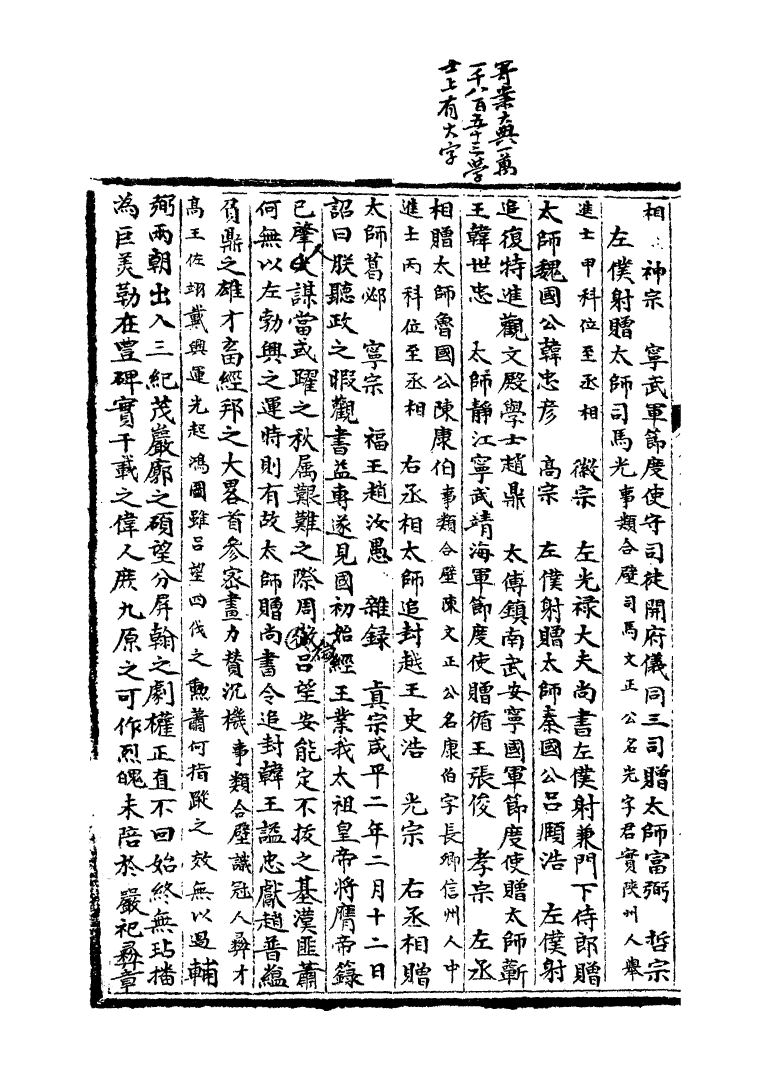 寄案大典一萬
一千八百五十三學
士上有大字
相 神宗 寧武軍節度使守司徒開府儀同三司贈太師富弼 哲宗
左僕射贈太師司馬光事類合璧司馬文正公名光字君實陜州人舉
進士甲科位至丞相 徽宗 左光祿大夫尚書左僕射兼門下侍郎贈
太師魏國公韓忠彦 高宗 左僕射贈太師秦國公呂頤浩 左僕射
追復特進觀文殿學士趙鼎 太傅鎮南武安寧國軍節度使贈太師蘄
王韓世忠 太師靜江寧武靖海軍節度使贈循王張俊 孝宗 左丞
相贈太師魯國公陳康伯事類合璧陳文正公名康伯字長卿信州人中
進士丙科位至丞相 右丞相太師追封越王史浩 光宗 右丞相贈
太師葛邲 寧宗 福王趙汝愚 雜録 真宗咸平二年二月十二日
詔曰朕聽政之暇觀書益專遂見國初始經王業我太祖皇帝將膺帝籙
已肇人謀當或躍之秋属艱難之際周微呂望安能定不拔之基漢匪蕭
何無以左勃興之運時則有故太師贈尚書令追封韓王謚忠獻趙普蘊
負鼎之雄才畜經邦之大畧首參宻畫力賛沉機事類合璧識冠人彞才
髙王佐翊戴興運光起鴻圖雖呂望四伐之勲蕭何指蹤之效無以過輔
弼兩朝出入三紀茂巖廓之碩望分屏翰之劇權正直不回始終無玷播
為巨美勒在豐碑實千載之偉人庶九原之可作烈魄未陪於嚴祀彞章